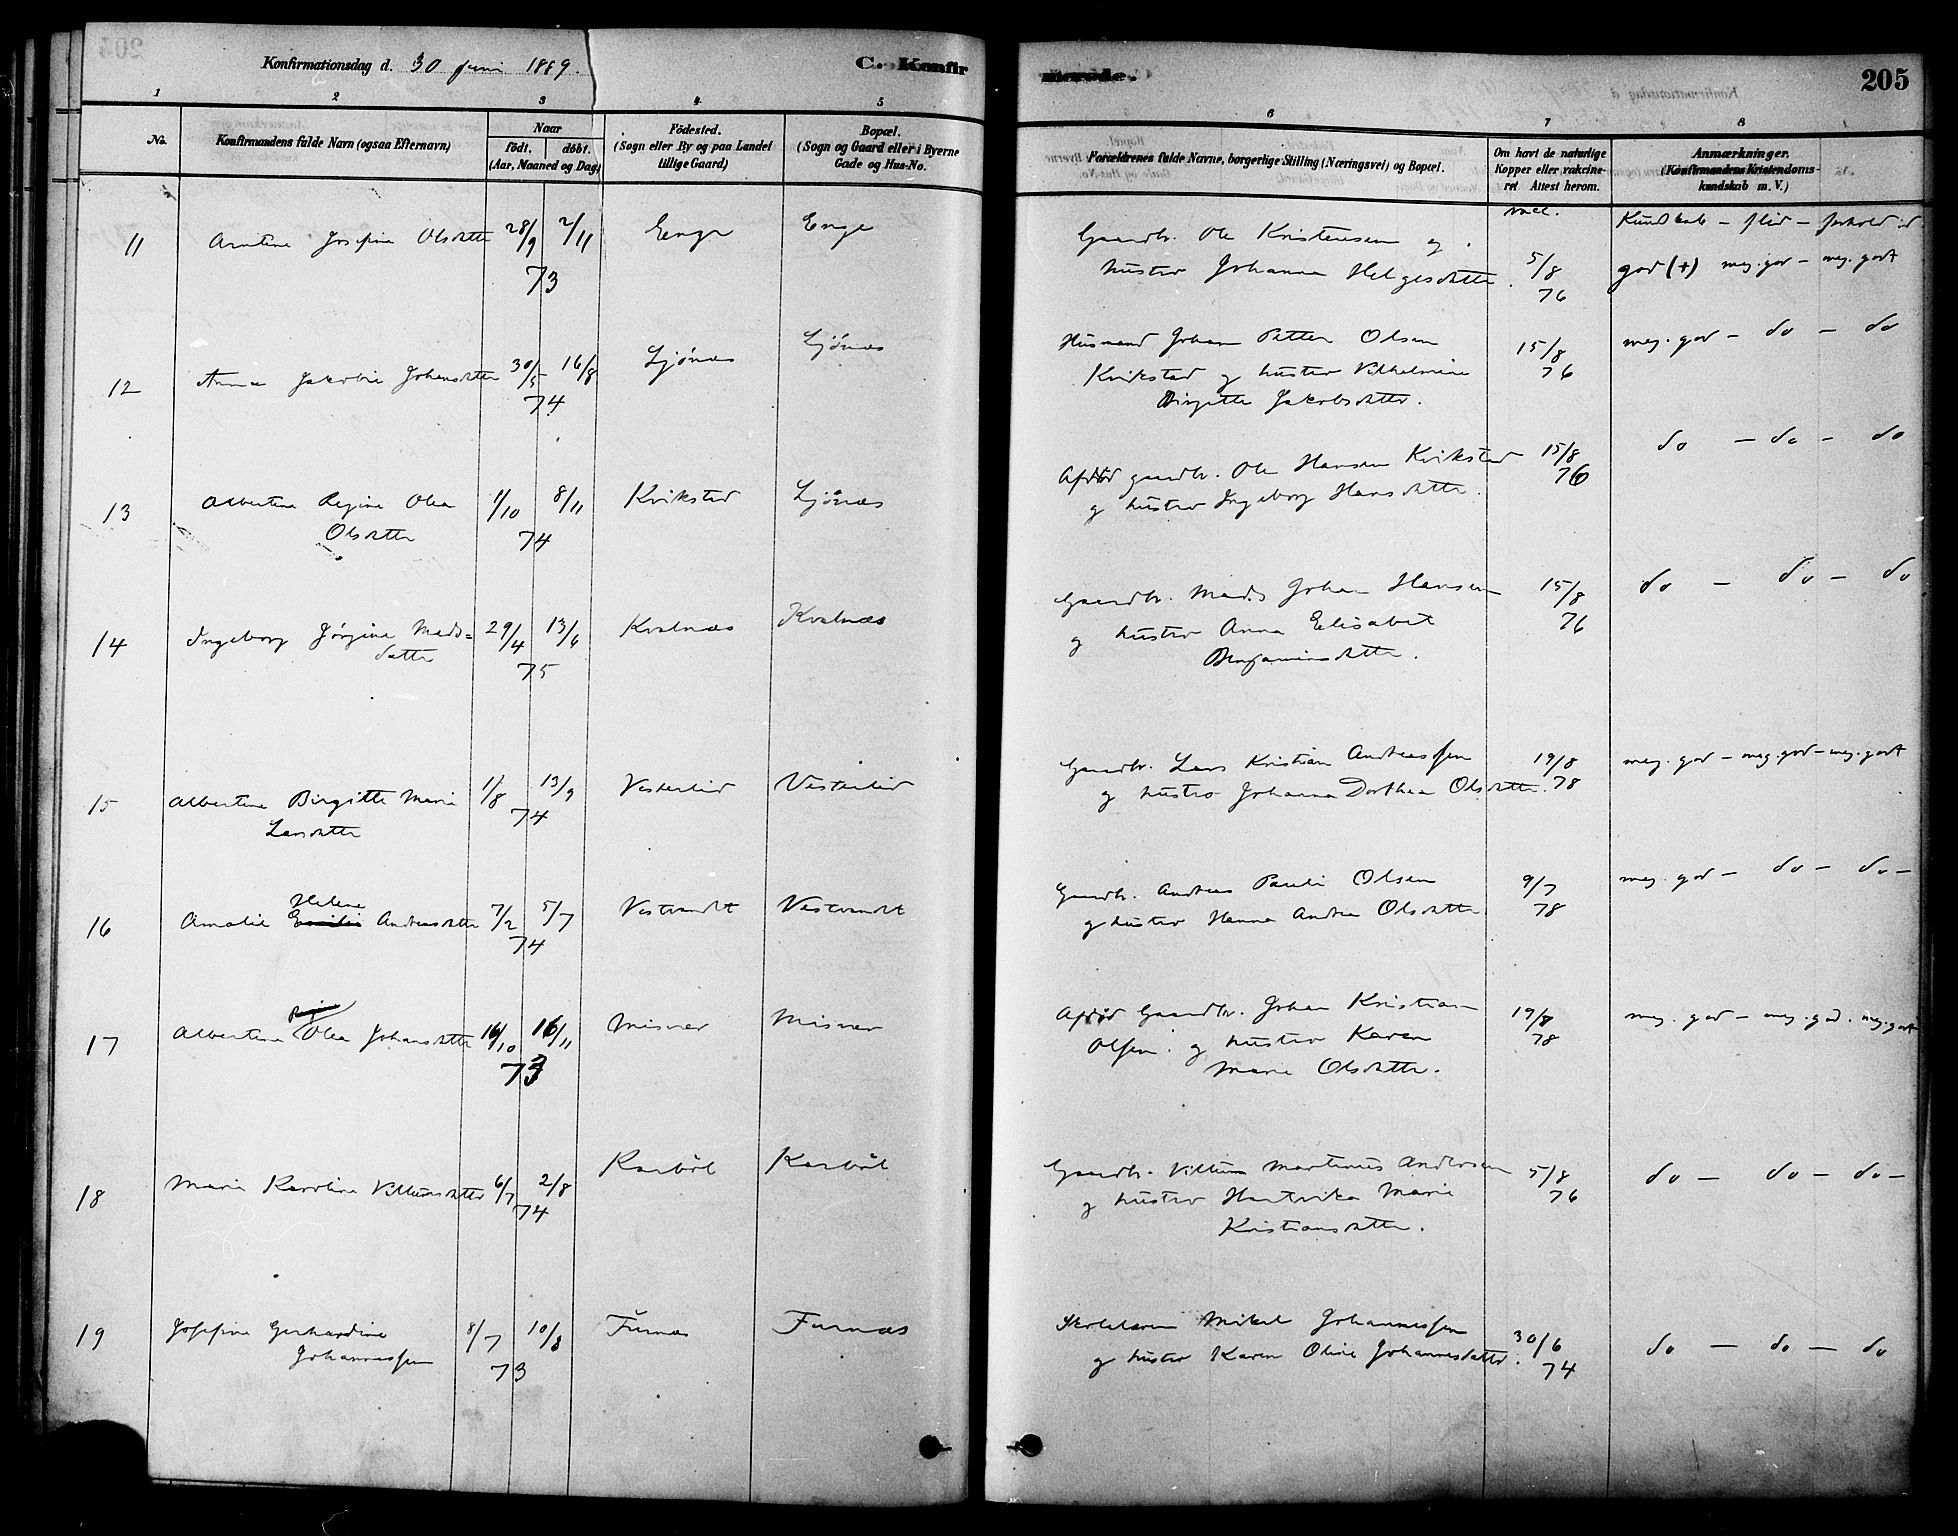 Konfirmationsdag d. 30 Juni 1889. C. Konfir
marede. 205
1 2 3 4 5 6 7 8
No. Konfirmandens fulde Navn (ogsaa Efternavn) Naar födt. döbt. (Aar, Maaned og Dag) Födested. (Sogn eller By og paa Landet tillige Gaard) Bopæl. (Sogn og Gaard eller i Byerne Gade og Hus-No. Forældrenes fulde Navne, borgerlige Stilling (Næringsvei) og Bopæl. Om havt de naturlige Kopper eller vakcineret Attest herom. Anmærkninger. (Konfirmandens Kristendomskundskab m. V.)
vacc. Kundskab - flid - forhold
11 Arntine Josefine Olsdatter 28/9 2/11 Enge Enge Gaardbr. Ole Kristensen og 5/8 god (+) meg. god - meg. godt
73 hustro Johanna Helgesdatter. 76
12 Anna Jakobie Johansdatter 30/5 16/8 Ljønæs Ljønæs Husmand Johan Petter Olsen 15/8 meg. god - do - do
74 Kvikstad og hustro Vilhelmine 76
Birgitte Jakobsdatter.
13 Albertine Regine Olea 1/10 8/11 Kvikstad Ljønæs Afdød gaardbr. Ole Hansen Kvikstad 15/8 do - do - do
Olsdatter 74 og hustro Ingeborg Hansdatter. 76
14 Ingeborg Jørgine Mads= 29/4 13/6 Kvalnæs Kvalnæs Gaardbr. Mads Johan Hansen 15/8 do - do - do
datter 75 og hustro Anna Elisabet 76
Benjaminsdatter.
15 Albertine Birgitte Marie 1/8 13/9 Vesterlid Vesterlid Gaardbr. Lars Kristian Andreassen 19/8 meg. god - meg. god - meg. godt
Larsdatter 74 og hustro Johanna Dorthea Olsdatter. 78
Helene
16 Amalie Emilie Andreasdatter 7/2 5/7 Vestvandt Vestvandt Gaardbr. Andreas Pauli Olsen 9/7 meg. god - do - do -
74 og hustro Hanna Andrea Olsdatter 78
17 Albertine Olea Johansdatter 16/10 16/11 Misvær Misvær Afdød Gaardbr. Johan Kristian 19/8 meg. god - meg. god. meg. godt
73 Olsen. og hustro Karen 78
Marie Olsdatter.
18 Marie Karoline Villumsdatter 6/7 2/8 Karbøl Karbøl Gaardbr. Villum Martinus Andersen 5/8 do - do - do -
74 og hustro Hartvika Marie 76
Kristiansdatter.
19 Josefine Gerhardine 8/7 10/8 Furnæs Furnæs Mikal Johannessen 30/6 do - do - do
Johannessen 73 og hustro Karen Oline Johannesdatter. 74